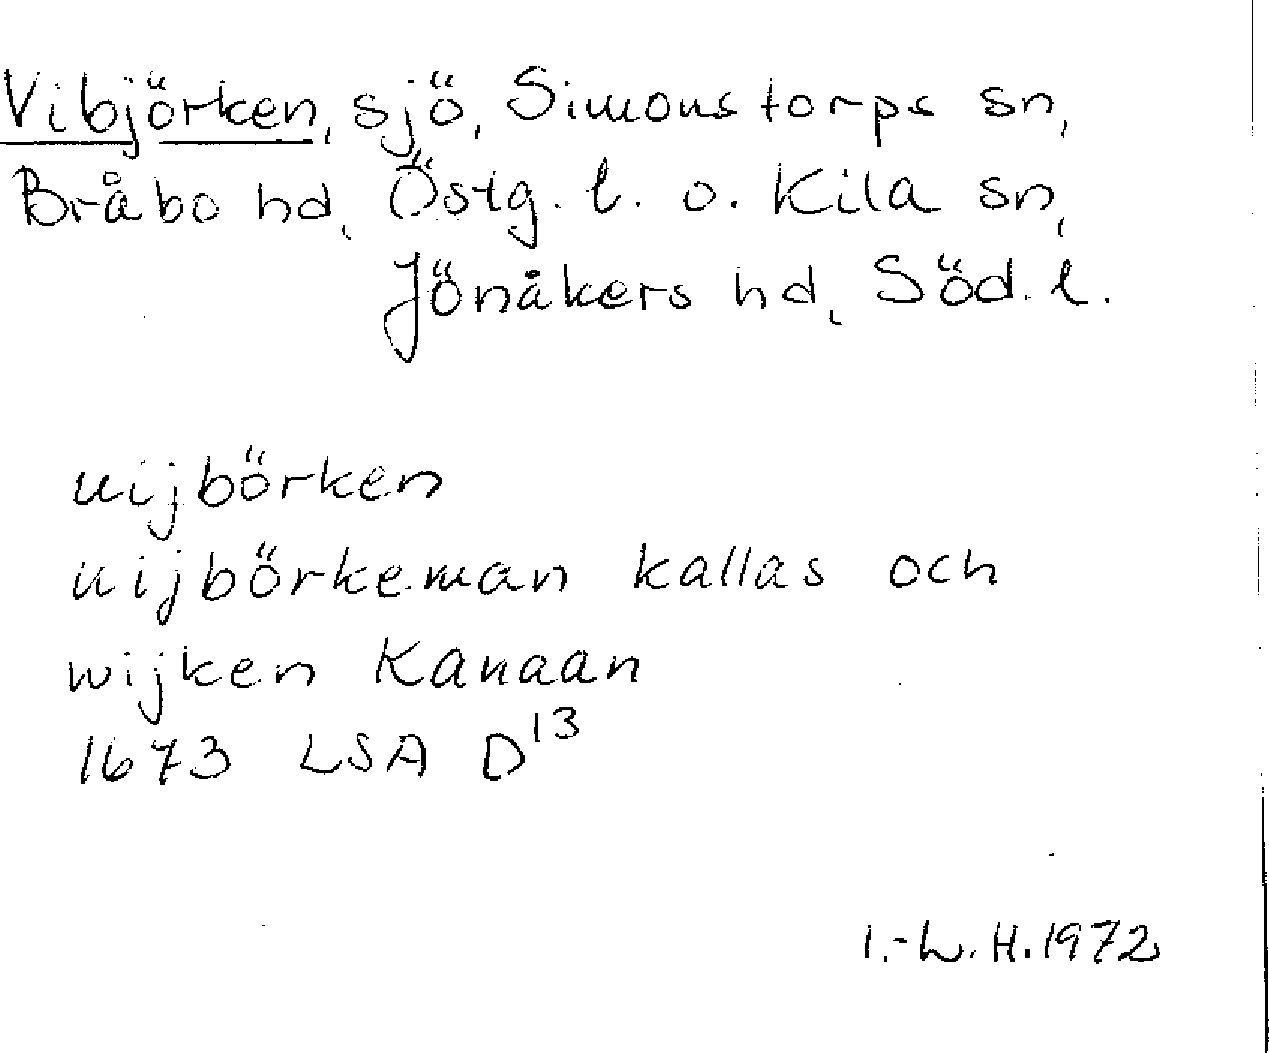 Vibjörken, sjö, Simonstorps sn,
Bråbo hd, Östg. l. o. Kila sn,
Jönåkers hd, Söd. l.
uijbörken
uijbörkeman kallas och
wijken Kanaan
1673 LSA D13
I.-L. H. 1972